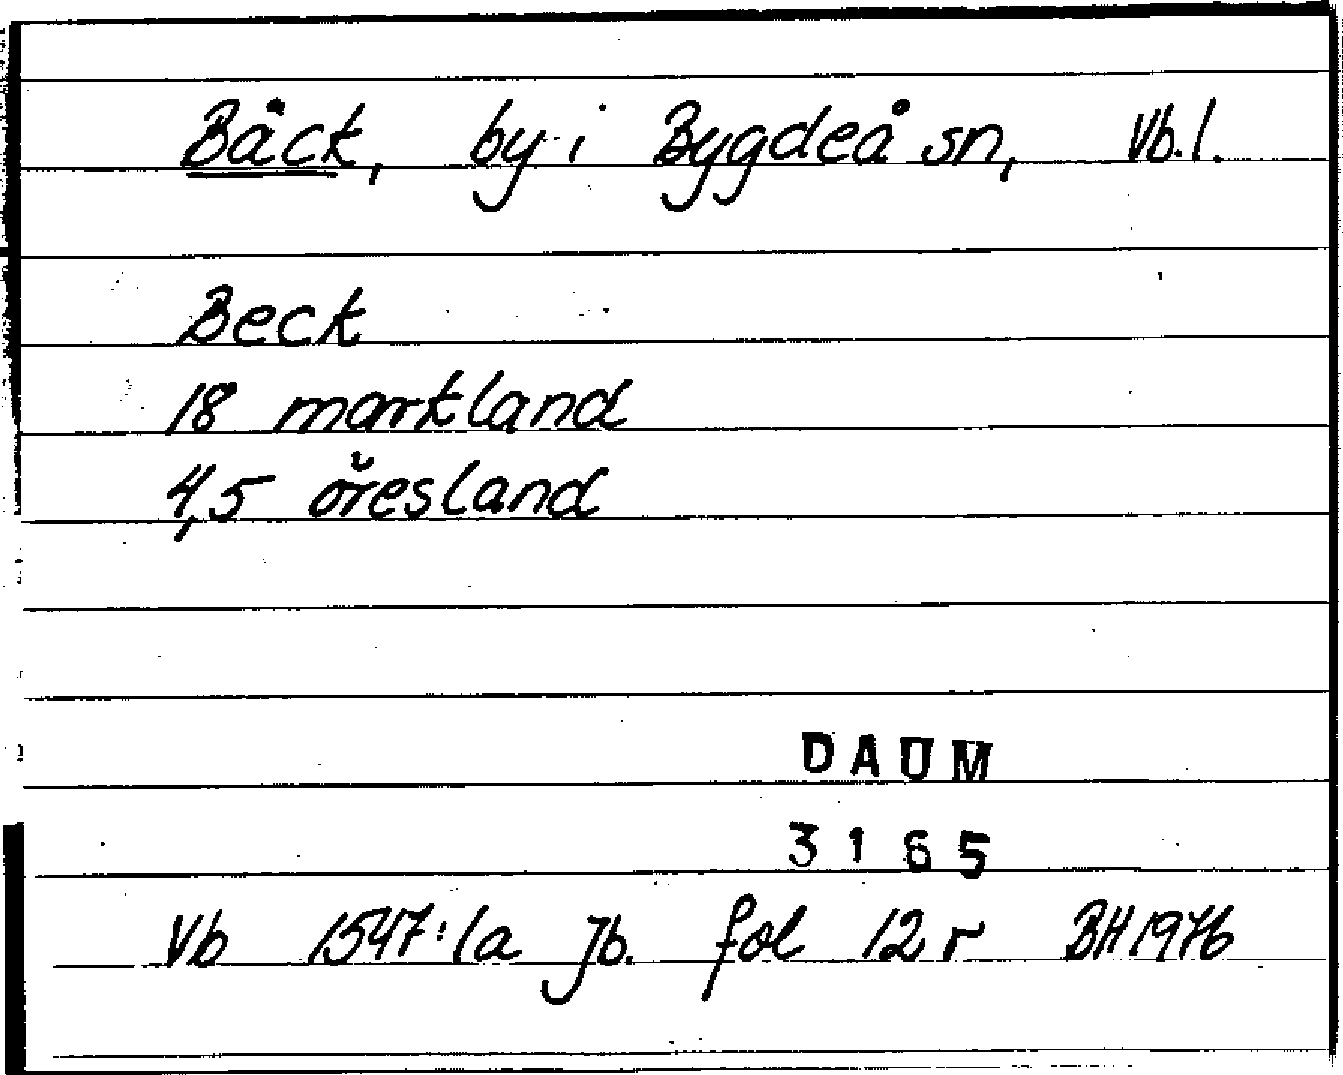 Bäck, by i Bygdeå sn, Vb.l.
Beck
18 markland
4,5 öresland
DAUM
3165
Vb 1547:1a Jb. fol 12 r BH 1976